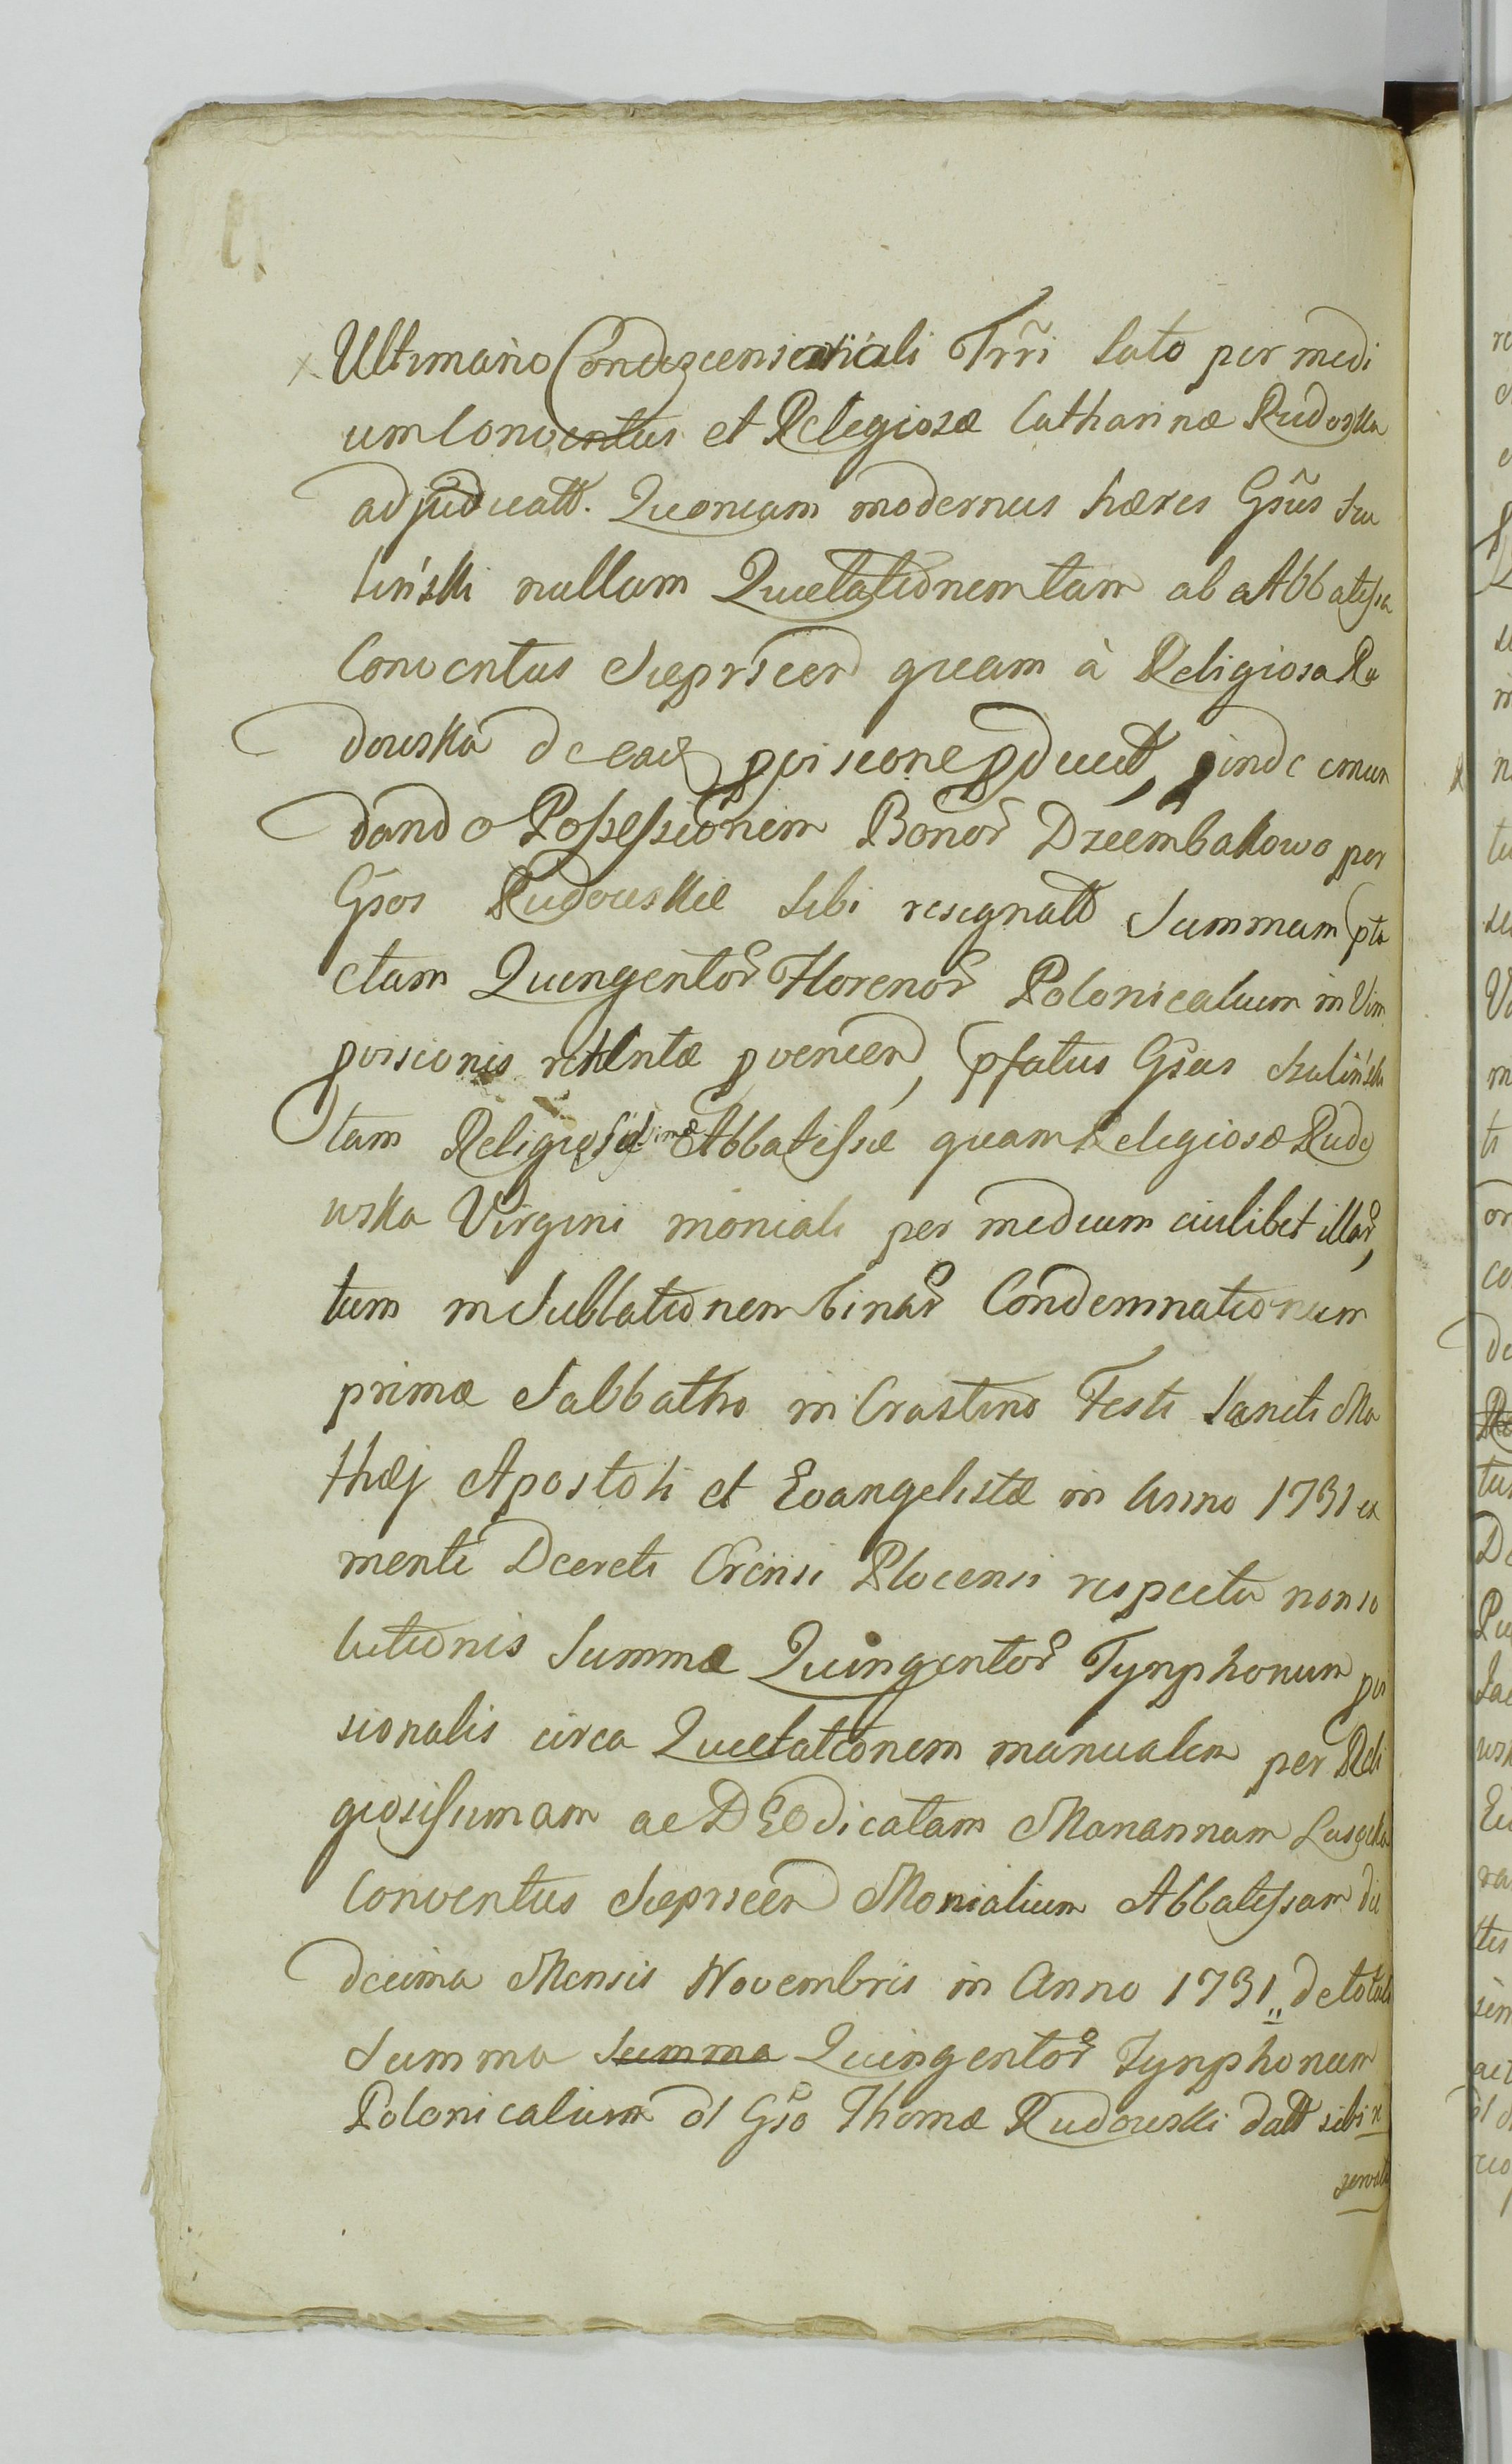 Ultimario Condescensionali Trri lato per medi
um Conventus et Religiosæ Catharinæ Rudoska
adjudicatt. Quoniam modernus hæres Gsus Szu
liński nullam Quietationem tam ab Abbatissa
Conventus Sieprscen quam à Religiosa Ru
dowska de ead provisione pducit, pinde emun
dando Possessionem Bonor Dziembakowo per
Gsos Rudowskie sibi resignatt Summam pta
ctam Quingentor Florenor Polonicalium in Vim
provisionis retentæ pvenien, pfatus Gsus Szuliński
tam Religiosissimæ Abbatissæ quam Religiosæ Rudo
wska Virgini moniali per medium cuilibet illar,
tum in Sublationem binar Condemnationum
primæ Sabbatho in Crastino Festi Sancti Ma
thæj Apostoli et Evangelistæ in Anno 1731 ex
menti Decreti Crensi Plocensi respectu non so
lutionis Summæ Quingentor Tynphonum pvi
sionalis circa Quietationem manualem per Reli
giosissimam ac DEO dicatam Mariannam
Conventus Sieprscen Monialium Abbatissam die
decima Mensis Novembris in Anno 1731,, de totali
Summa summa Quingentor Tynphonum
Polonicalium ol Gso Thomæ Rudowski datt sibi re
servata